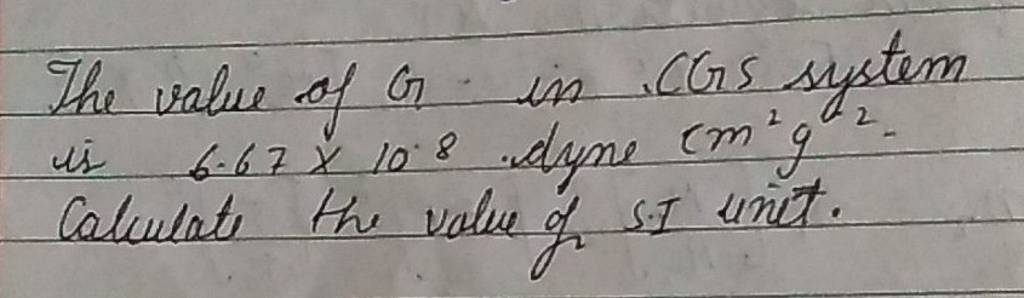 The value of G in CGS system
is 6.67 X 10⁻8 dyne cm²g⁻².
Calculate the value of S.I unit.